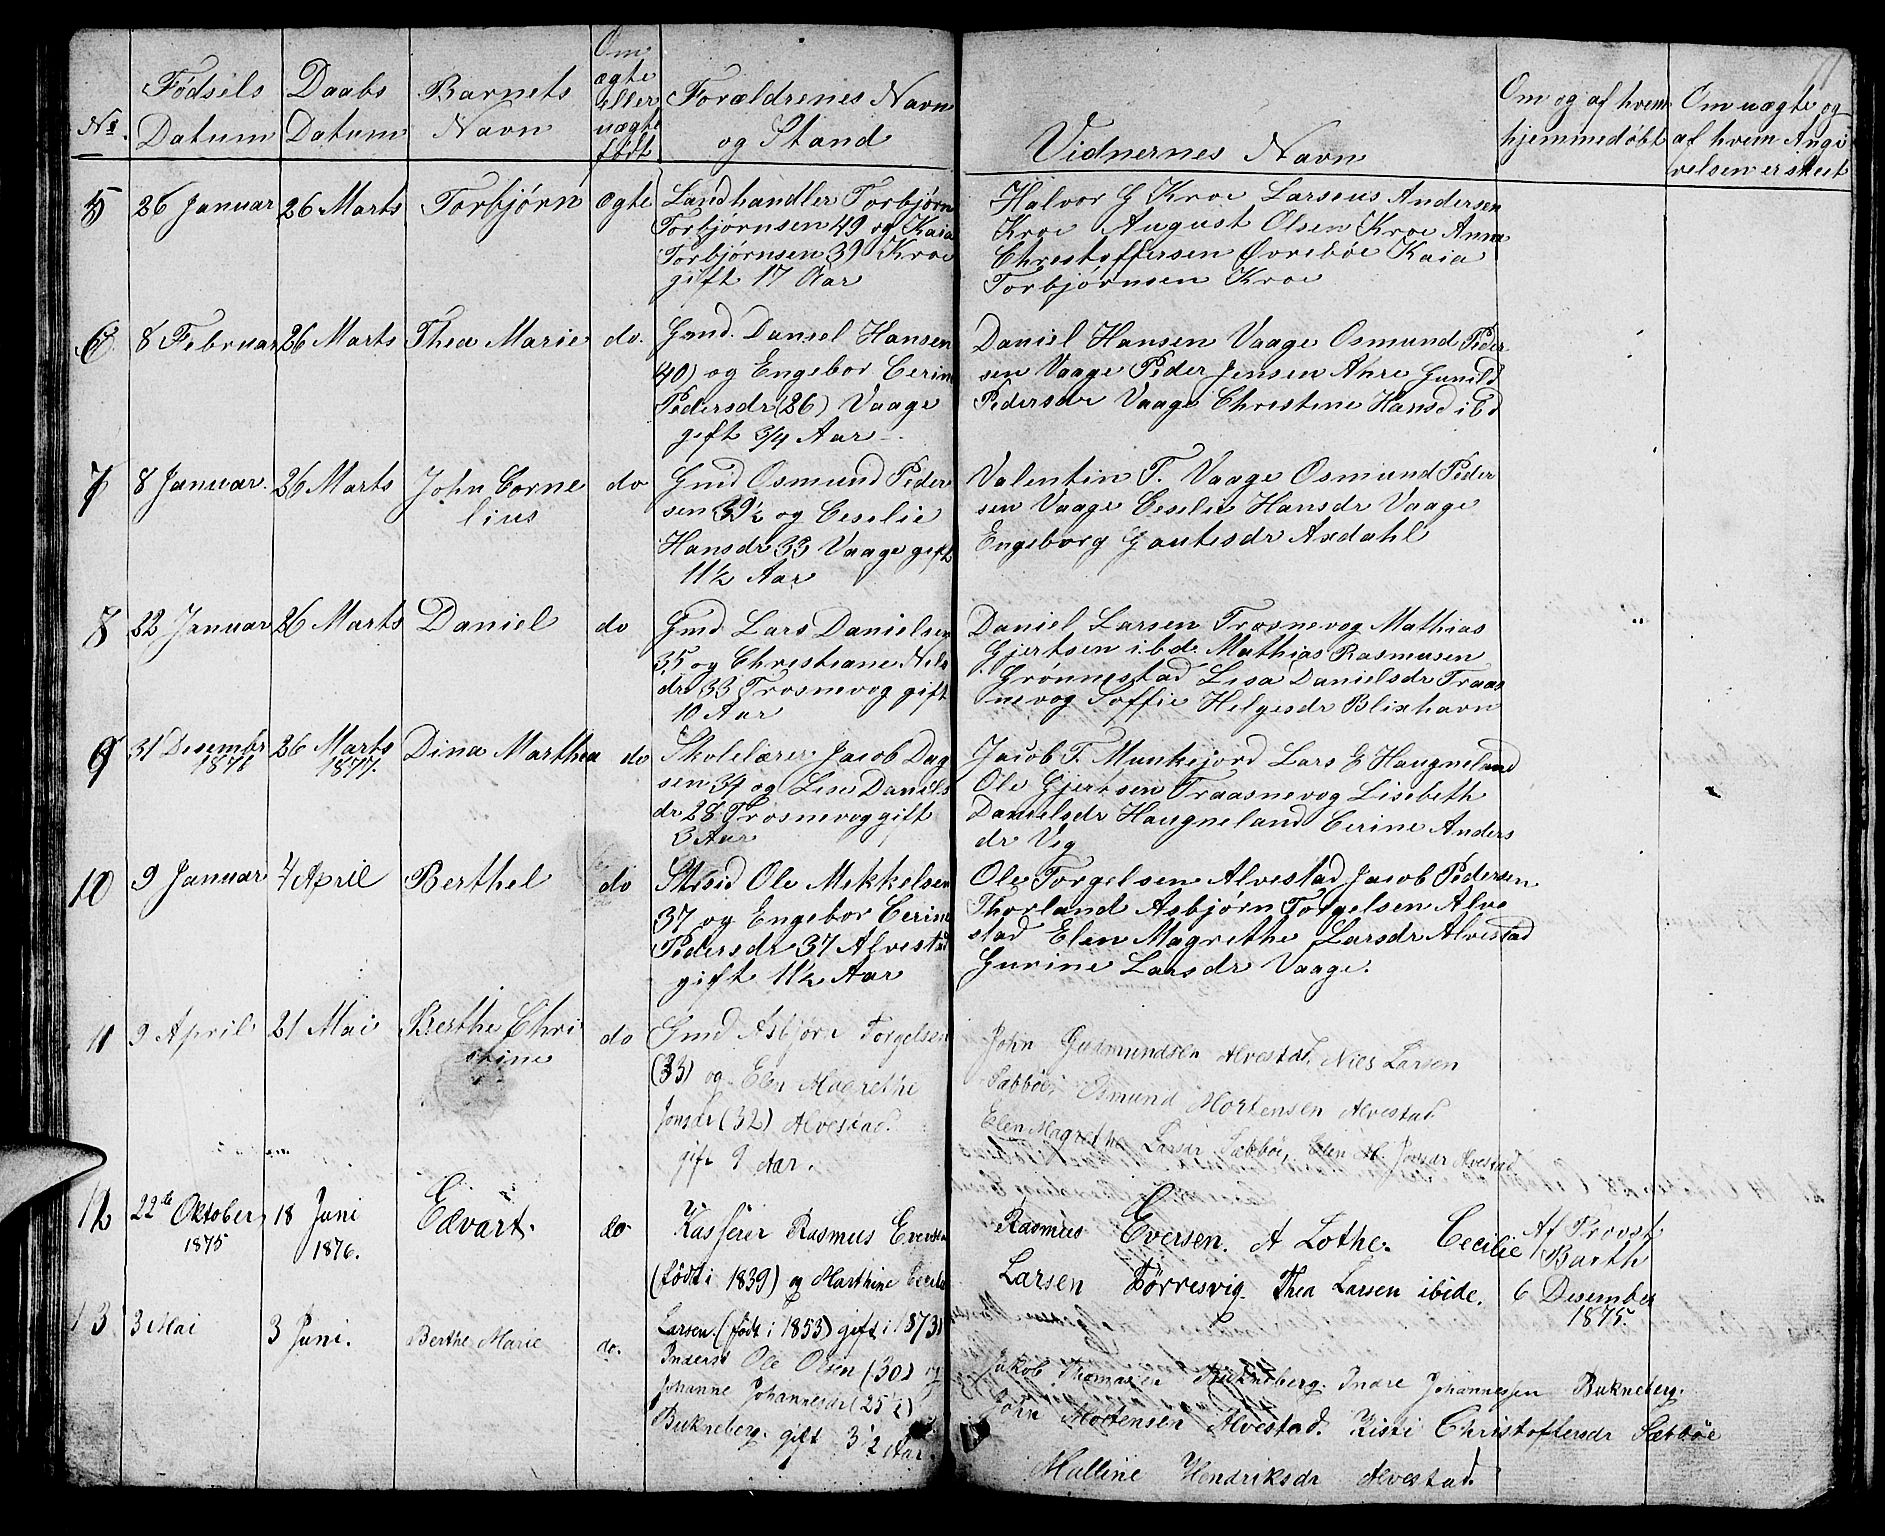 71
No. Fødsels Datum Daabs Datum Barnets Navn Om ægte eller uægte født Forældrenes Navn og Stand Vidnernes Navn Om og af hvem hjemmedøbt Om uægte og af hvem Angivelsen er skeet
5 26 Januar 26 Marts Torbjørn ægte Landhandler Torbjørn
Torbjørnsen 49 og Kaia
Torbjørnsen 39 Kroe
gift 17 Aar
Halvor G Kroe Larseus Andersen
Kroe August Olsen Kroe Anna
Chrestoffersen Øvrebøe Kaia
Torbjørnsen Kroe
6 8 Februar 26 Marts Thea Marie do. Gmd. Daniel Hansen
40) og Engebor Cerine
Pedersdr (26) Vaage
gift 3/4 Aar
Daniel Hansen Vaage Osmund Peder
sen Vaage Peder Jensen Ahre Gunild
Pedersdr Vaage Christine Hansd ibd
7 8 Januar. 26 Marts John Corne
lius do Gmd Osmund Peder
sen 39½ og Ceselie
Hansdr 33 Vaage gift
11½ Aar
Valentin T. Vaage Osmund Peder
sen Vaage Ceselie Hansdr Vaage
Engeborg Gautesdr Axdahl
8 22 Januar 26 Marts Daniel do Gmd Lars Danielsen
35 og Christiane Nils
dr 33 Trosnevog gift
10 Aar
Daniel Larsen Trosnevog Mathias
Gjertsen ibd. Mathias Rasmusen
Grønnestad Lisa Danielsdr Traas
nevog Soffie Helgesdr Blixhavn
9 31 Desembr 26 Marts Dina Marthea do Skolelærer Jacob Dag
1876 1877. sen 34 og Lise Daniels
dr 28 Trosnevog gift
3 Aar
Jacob T. Munkejord Lars G Haugneland
Ole Gjertsen Traasnevog Lisebeth
Danielsdr Haugneland Cerine Anders
dr Vig
10 9 Januar 4 April Berthel do Ole Mekkelsen
37 og Engebor Cerine
Pedersdr 37 Alvestad
gift 11½ Aar
Ole Torgelsen Alvestad Jacob Pedersen
Thorland Asbjørn Torgelsen Alve
stad Elen Magrethe Larsdr Alvestad
Gurine Larsdr Vaage.
11 9 April 21 Mai Berthe Chri
stine do Gmd Asbjørn Torgelsen
(33) og Elen Magrethe
Jonsdr (32) Alvestad.
gift 9 Aar.
John Gudmundsen Alvestad. Niels Larsen
Sæbbøe, Osmund Mortensen Alvestad
Elen Magrethe Larsdr Sæbbøe, Elen M. Jonsdr Alvestad
12 22de Oktober 18 Juni Edvart. do Kasserer Rasmus Eversen
1875 1876. (født i 1839) og Marthine Cecilie
Larsen. (født i 1853) gift i 1873.
Rasmus Eversen. A Lothe. Cecilie
Larsen Førresvig. Thea Larsen ibide.
Af Provst
Barth
6 Desember
1875.
13 3 Mai 3 Juni. Berthe Marie do. Inderst Ole Olsen (30) og
Johanne Johannesdr (25½)
Bukneberg. gift 3½ Aar.
Jakob Thomasen Bukneberg. Indre Johannessen Bukneberg.
John Mortensen Alvestad. Kisti Christoffersdr Sæbbøe
Malline Hendriksdr Alvestad.